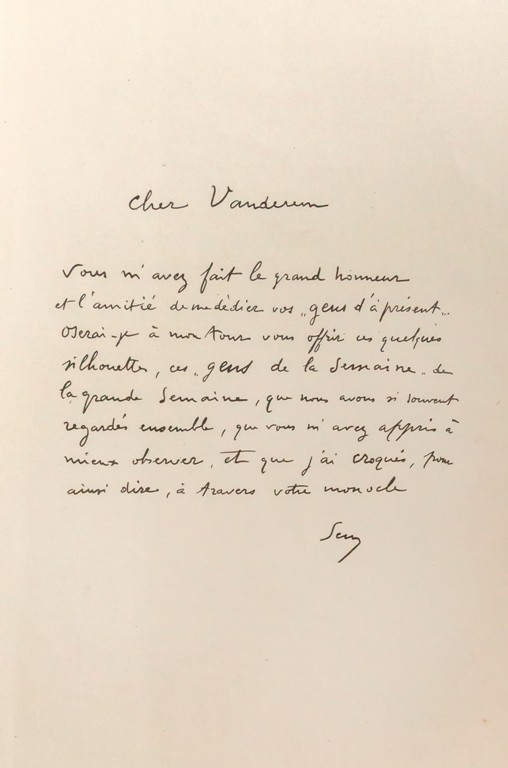 Cher Vanderem
Vous m'avez fait le grand honneur
et l'amitié de me dédier vos „gens d'à présent„.
Oserai-je à mon tour vous offrir ces quelques
silhouettes, ces „gens de la Semaine„ de
la grande Semaine, que nous avons si souvent
regardés ensemble, que vous m'avez appris à
mieux observer, et que j'ai croqués, pour
ainsi dire, à travers votre monocle
Sem